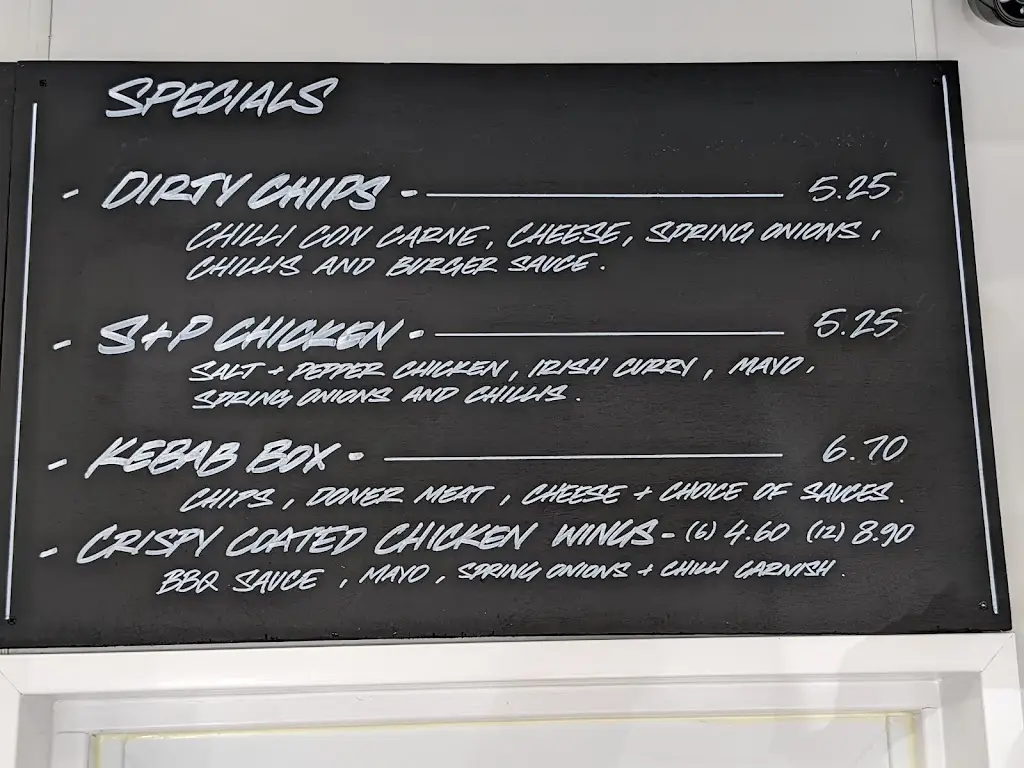 SPECIALS
- DIRTY CHIPS - 5.25
CHILLI CON CARNE, CHEESE, SPRING ONIONS,
CHILLIS AND BURGER SAUCE.
- S+P CHICKEN - 5.25
SALT + PEPPER CHICKEN, IRISH CURRY, MAYO,
SPRING ONIONS AND CHILLIS.
- KEBAB BOX - 6.70
CHIPS, DONER MEAT, CHEESE + CHOICE OF SAUCES.
- CRISPY COATED CHICKEN WINGS - (6) 4.60 (12) 8.90
BBQ SAUCE, MAYO, SPRING ONIONS + CHILLI GARNISH.